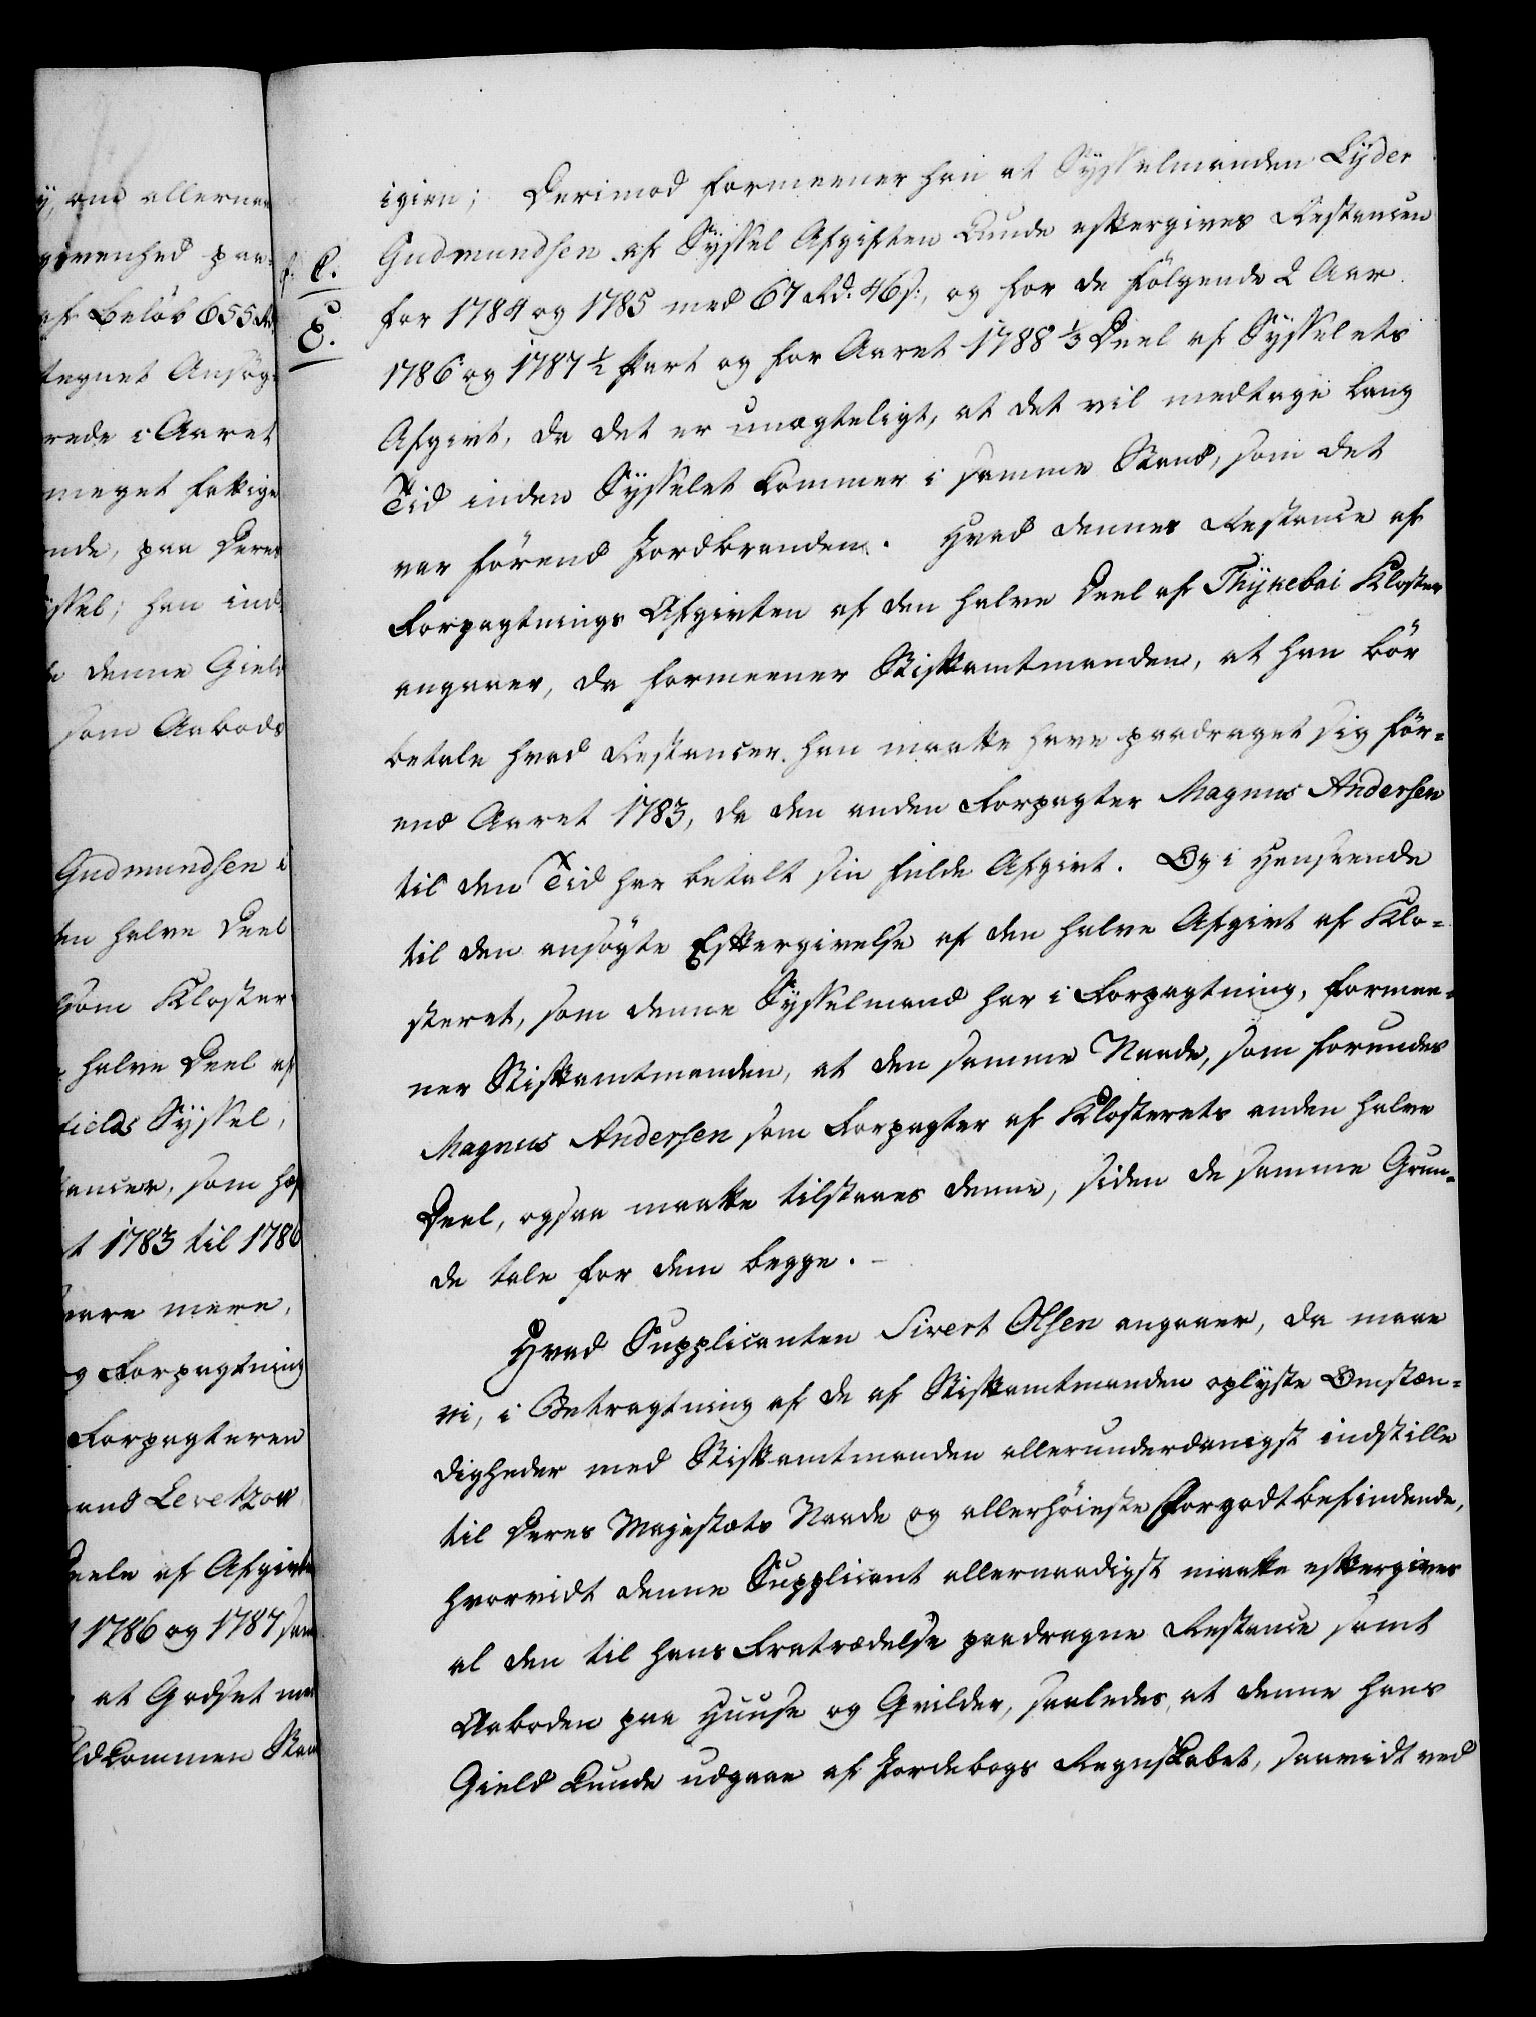 y, om allernaa
givenhed paa
af Beløb 655 Rd
tegnet Ansøg-
rede i Aaret
meget fattige
ende, paa Deres
yssel; han ind-
denne Gield
som Aabods
Gudmundsen i
den halve Deel
som Kloster
halve Deel af
fields Sÿssel,
tancer, som hæf
et 1783 til 1786
vare mere,
og Forpagtning
Forpagteren
mand Levetzow
Deele af Afgivte
1786 og 1787 saa
at Godset maa
ldkommen Stan
C.
E.
igien; Derimod formeener han at Sÿsselmanden Lÿder
Gudmundsen af Sÿssel Afgiften kunde eftergives Restancen
for 1784 og 1785 med 67 Rd. 46 s:, og for de følgende 2 Aar
1786 og 1787 ½ part og for Aaret 1788 ⅓ Deel af Sÿsselets
Afgivt, da det er unægteligt, at det vil medtage lang
Tid inden Sÿsselet kommer i samme Stand, som det
var førend Jordbranden. Hvad dennes Restance af
Forpagtnings Afgivten af den halve Deel af Thÿkebai Kloster
angaaer, da formeener Stiftamtmanden, at han bør
betale hvad Restancer han maatte have paadraget sig før-
end Aaret 1783, da den anden Forpagter Magnus Andersen
til den Tid har betalt sin fulde Afgivt. Og i Henseende
til den ansøgte Eftergivelse af den halve Afgivt af Klo-
steret, som denne Sÿsselmand har i Forpagtning, formee-
ner Stiftamtmanden, at den samme Naade, som forundes
Magnus Andersen som Forpagter af Klosterets anden halve
Deel, ogsaa maatte tilstaaes denne, siden de samme Grun-
de tale for dem begge. -
Hvad Supplicanten Sivert Olsen angaaer, da maae
vi, i Betragtning af de af Stiftamtmanden oplÿste Omstæn-
digheder med Stiftamtmanden allerunderdanigst indstille
til Deres Majestæts Naade og allerhøieste Forgodtbefindende,
hvorvidt denne Supplicant allernaadigst maatte eftergives
al den til hans Fratrædelse paadragne Restance samt
Aaboden paa Huuse og Qvilder, saaledes, at denne hans
Gield kunde udgaae af Jordebogs Regnskabet, saavidt ved